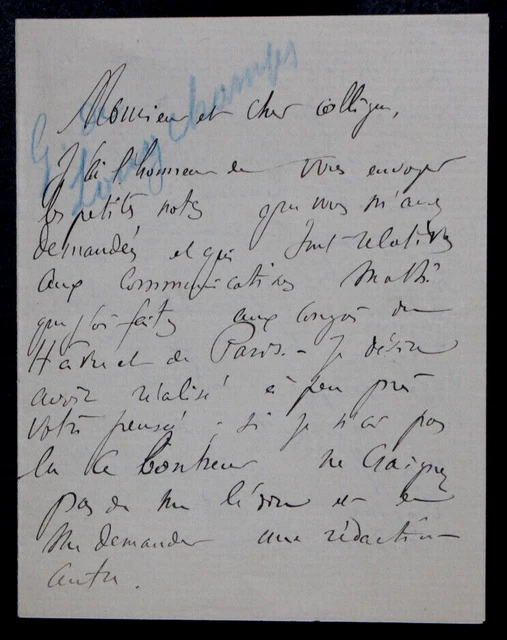 G. de Longchamps
Monsieur et cher collègue,
J'ai l'honneur de vous envoyer
les petites notes que vous m'avez
demandées et qui sont relatives
aux communications Math.
que j'ai faites aux congrès du
Havre et de Paris. – Je désire
avoir réalisé à peu près
votre pensée; si je n'ai pas
eu ce bonheur ne craignez
pas de me l'écrire et de
me demander une rédaction
autre.